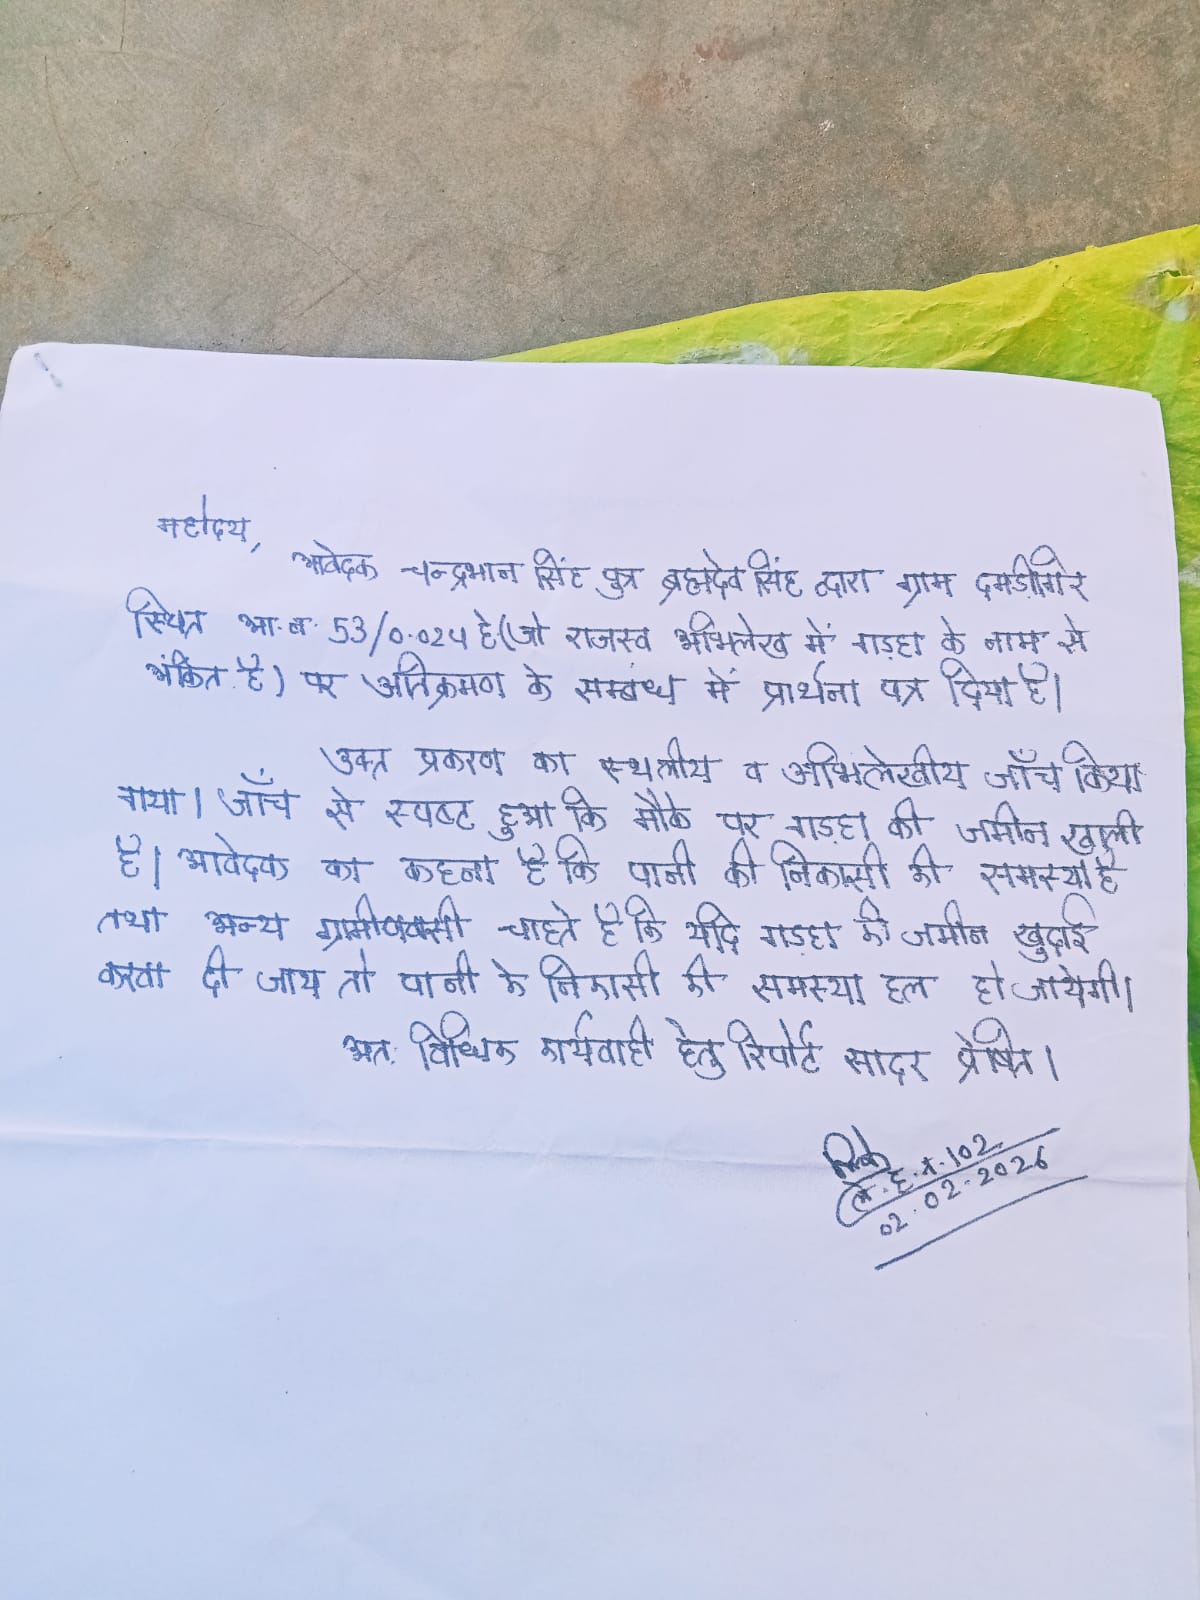 महोदय,
आवेदक चन्द्रभान सिंह पुत्र ब्रह्मदेव सिंह द्वारा ग्राम दमड़ीगिर
स्थित आ.न. 53/0.024 हे (जो राजस्व अभिलेख में गड़हा के नाम से
अंकित है) पर अतिक्रमण के सम्बंध में प्रार्थना पत्र दिया है।
उक्त प्रकरण का स्थलीय व अभिलेखीय जाँच किया
गया। जाँच से स्पष्ट हुआ कि मौके पर गड़हा की जमीन खाली
है। आवेदक का कहना है कि पानी की निकासी की समस्या है
तथा अन्य ग्रामीणवासी चाहते है कि यदि गड़हा की जमीन खुदाई
करवा दी जाय तो पानी के निकासी की समस्या हल हो जायेगी।
अतः विधिक कार्यवाही हेतु रिपोर्ट सादर प्रेषित।
102
02.02.2026